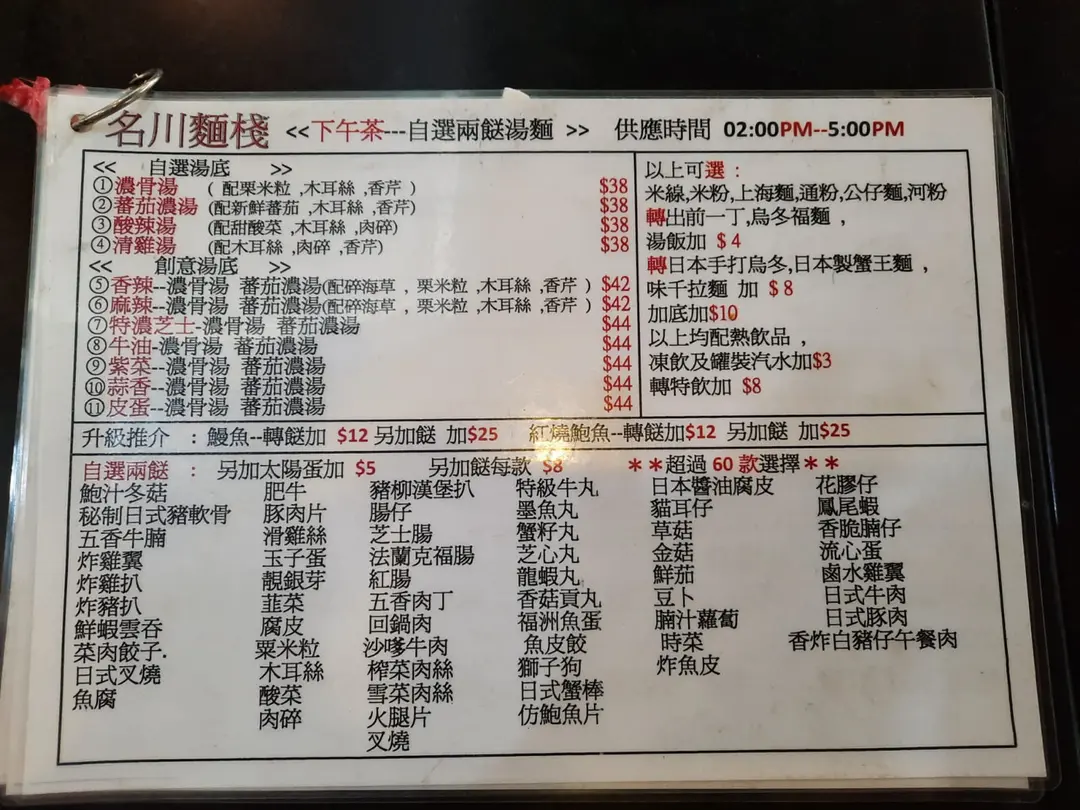 名川麵棧 <<下午茶---自選兩餸湯麵 >> 供應時間 02:00PM--5:00PM
<< 自選湯底 >>
①濃骨湯 ( 配栗米粒 ,木耳絲 ,香芹 ) $38
②蕃茄濃湯 (配新鮮蕃茄 ,木耳絲 ,香芹) $38
③酸辣湯 (配甜酸菜 ,木耳絲 ,肉碎) $38
④清雞湯 (配木耳絲 ,肉碎 ,香芹) $38
<< 創意湯底 >>
⑤香辣--濃骨湯 蕃茄濃湯(配碎海草 , 栗米粒 ,木耳絲 ,香芹 ) $42
⑥麻辣--濃骨湯 蕃茄濃湯(配碎海草 , 栗米粒 ,木耳絲 ,香芹 ) $42
⑦特濃芝士-濃骨湯 蕃茄濃湯 $44
⑧牛油-濃骨湯 蕃茄濃湯 $44
⑨紫菜--濃骨湯 蕃茄濃湯 $44
⑩蒜香--濃骨湯 蕃茄濃湯 $44
⑪皮蛋--濃骨湯 蕃茄濃湯 $44
以上可選 :
米線,米粉,上海麵,通粉,公仔麵,河粉
轉出前一丁,烏冬福麵 ,
湯飯加 $ 4
轉日本手打烏冬,日本製蟹王麵 ,
味千拉麵 加 $ 8
加底加$10
以上均配熱飲品 ,
凍飲及罐裝汽水加$3
轉特飲加 $8
升級推介 : 鰻魚--轉餸加 $12 另加餸 加$25 紅燒鮑魚--轉餸加$12 另加餸 加$25
自選兩餸 : 另加太陽蛋加 $5 另加餸每款 $8 **超過 60 款選擇**
鮑汁冬菇
秘制日式豬軟骨
五香牛腩
炸雞翼
炸雞扒
炸豬扒
鮮蝦雲吞
菜肉餃子.
日式叉燒
魚腐
肥牛
豚肉片
滑雞絲
玉子蛋
靚銀芽
韭菜
腐皮
粟米粒
木耳絲
酸菜
肉碎
豬柳漢堡扒
腸仔
芝士腸
法蘭克福腸
紅腸
五香肉丁
回鍋肉
沙嗲牛肉
榨菜肉絲
雪菜肉絲
火腿片
叉燒
特級牛丸
墨魚丸
蟹籽丸
芝心丸
龍蝦丸
香菇貢丸
福洲魚蛋
魚皮餃
獅子狗
日式蟹棒
仿鮑魚片
日本醬油腐皮
貓耳仔
草菇
金菇
鮮茄
豆卜
腩汁蘿蔔
時菜
炸魚皮
花膠仔
鳳尾蝦
香脆腩仔
流心蛋
鹵水雞翼
日式牛肉
日式豚肉
香炸白豬仔午餐肉